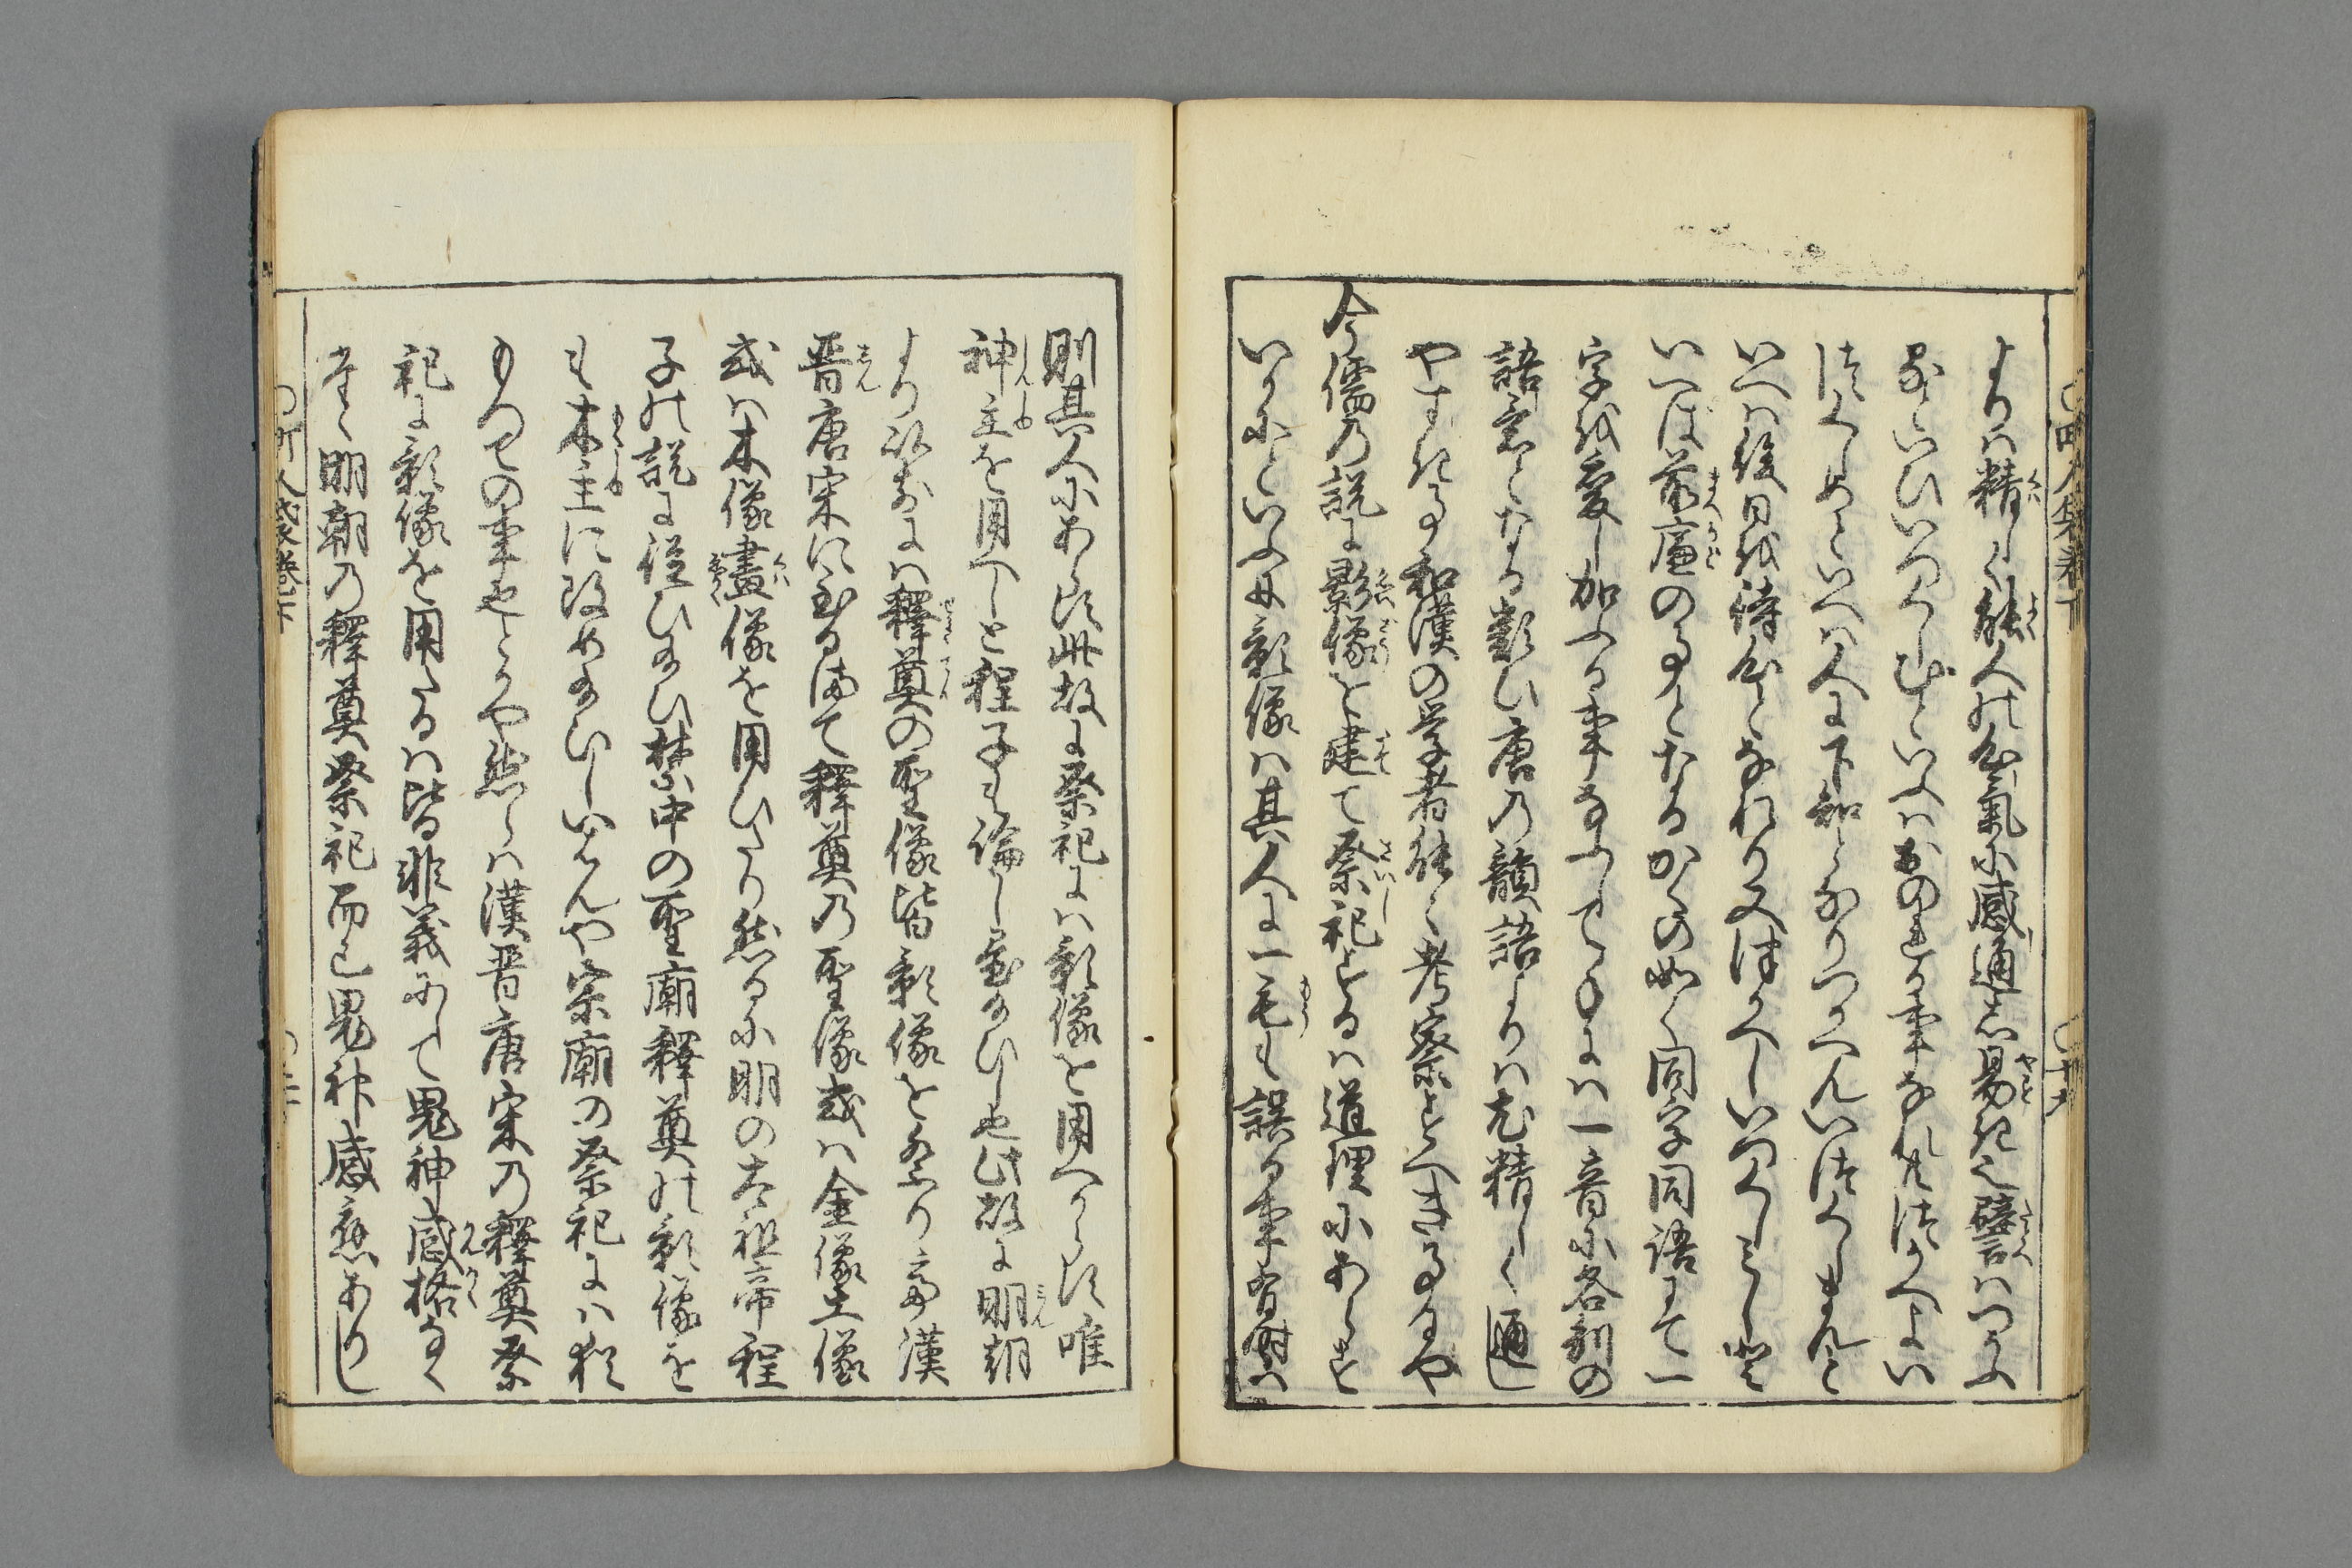 よりハ精しく能人の心氣に感通し易き也譬ハつかふ
つくしめといへハ人に下知しなりつかへんいつくしまんと
いへハ後日を待心となれり又つかへしいつくしミしと
いへば前廉の事となるかくの如く同字同語にて一
字を変し加ふる事なふして手にハ一音に各別の
語意となる類ひ唐の韻語よりハ尤精しく通し
やすき事和漢の学者能々考察すへき事なるや
今儒の説に影像を建て祭祀するハ道理にあらす
いかにといふに影像ハ其人に一毛も誤る事有時ハ
則其人にあらす此故に祭祀にハ影像を用へからす唯
神主を用へしと程子も論し置給ひし也此故に明朝
より以前にハ釋奠の聖像皆影像を祭り
晋唐宋に至る迄て釋奠の聖像或ハ金像土像
或ハ木像畫像を用ひたり然るに明の太祖帝程
子の説に従ひ給ひ禁中の聖廟釋奠の影像を
も木主に改め給ひしいはんや宗廟の祭祀にハ猶
もつての事也とかや然らハ漢晋唐宋の釋奠祭
祀に影像を用たるハ皆非義にして鬼神感格なく
たゝ明朝の釋奠祭祀而已鬼神感應ありし
町人袋巻下